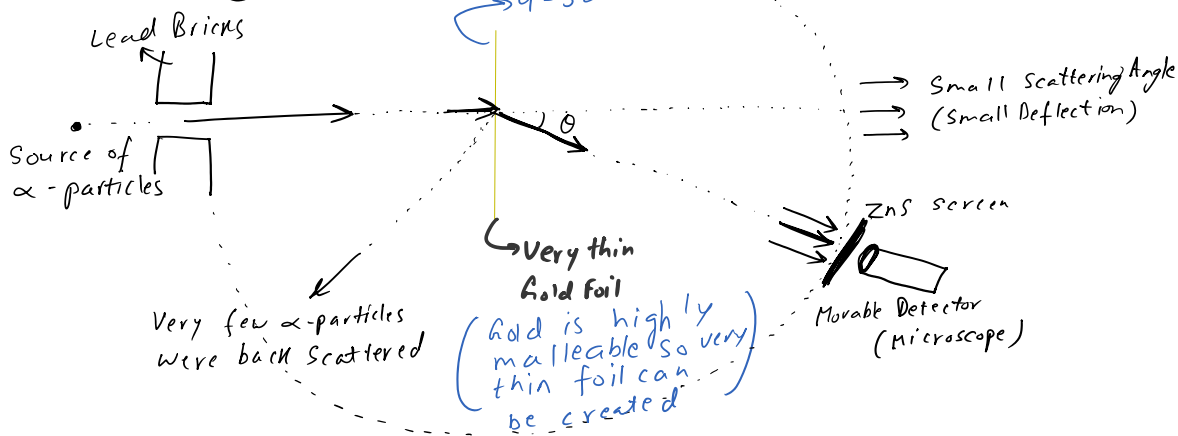 Lead Bricks
Source of
α-particles
θ
Small Scattering Angle
(Small Deflection)
ZnS screen
Movable Detector
(Microscope)
Very thin
Gold Foil
(Gold is highly
malleable so very
thin foil can
be created)
Very few α-particles
were back scattered